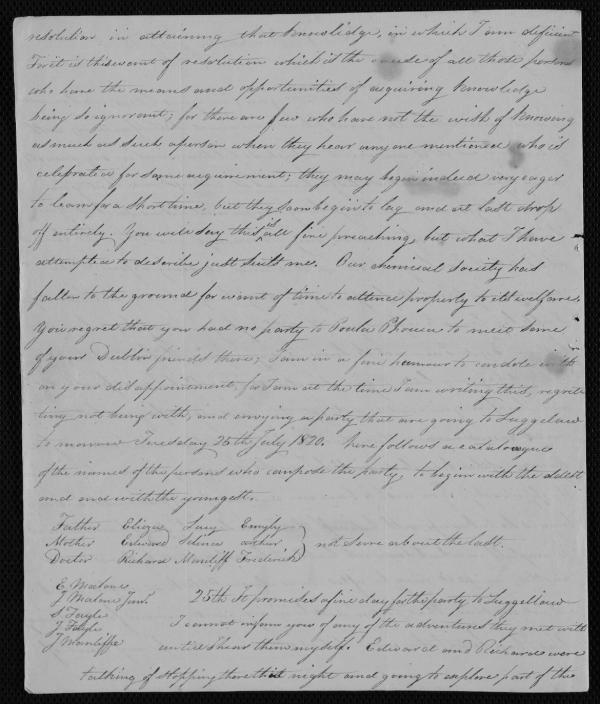 resolution in attaining that knowledge, in which I am deficient
For it is this want of resolution which is the cause of all those persons
who have the means and opportunities of acquiring knowledge
being so ignorant; for there are few who have not the wish of knowing
as much as such a person when they hear any one mentioned who is
celebrated for some acquirement; they may begin indeed very eager
to learn for a short time, but they soon begin to lag and at last drop
off entirely. You will say this is all fine preaching, but what I have
attempted to describe just suits me. Our chemical society has
fallen to the ground for want of time to attend properly to its welfare.
You regret that you had no party to Poula Phouca to meet some
of your Dublin friends there; I am in a fine humour to condole with
on your disappointment, for I am at the time I am writing this, regret
ting not being with, and envying a party that are going to Luggelaw
to morrow Tuesday 25th July 1820. Here follows a catalogue
of the names of the persons who compose the party, to begin with the oldest
and end with the youngest.
Father Eliza Lucy Emily
Mother Edward Selina Arthur
Doctor Richard Manliff Frederick
not sure about the last.
E Malone
J Malone Junr.
S Fayle
J Fayle
J Manliffe
25th It promises a fine day for the party to Luggelaw
I cannot inform you of any of the adventures they met with
until I hear them myself. Edward and Richard were
talking of stopping there that night and going to explore part of the